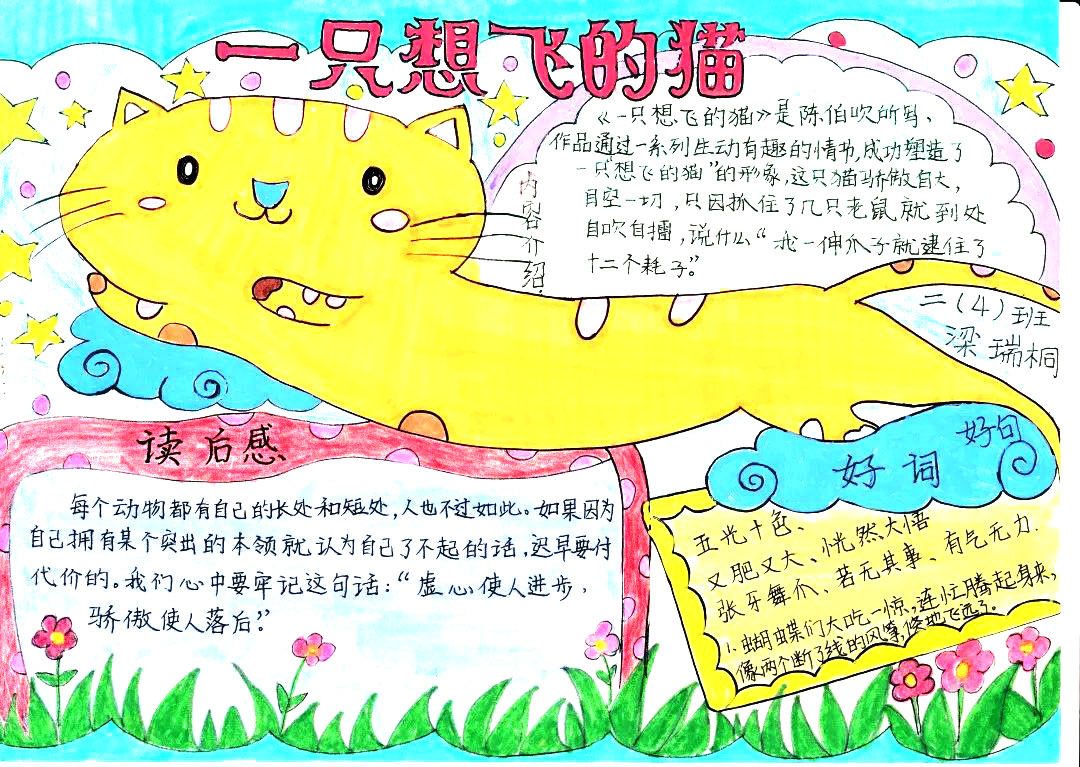 一只想飞的猫
内容介绍
《一只想飞的猫》是陈伯吹所写、
作品通过一系列生动有趣的情节,成功塑造了
一只"想飞的猫"的形象,这只猫骄傲自大,
目空一切,只因抓住了几只老鼠就到处
自吹自擂,说什么"我一伸爪子就逮住了
十二个耗子。"
二(4)班
梁瑞桐
读后感
每个动物都有自己的长处和短处,人也不过如此。如果因为
自己拥有某个突出的本领就认为自己了不起的话,迟早要付
代价的。我们心中要牢记这句话:"虚心使人进步,
骄傲使人落后。"
好词
好句
五光十色、
又肥又大、恍然大悟
张牙舞爪、若无其事、有气无力.
1.蝴蝶们大吃一惊,连忙腾起身来,
像两个断了线的风筝,倏地飞远了。